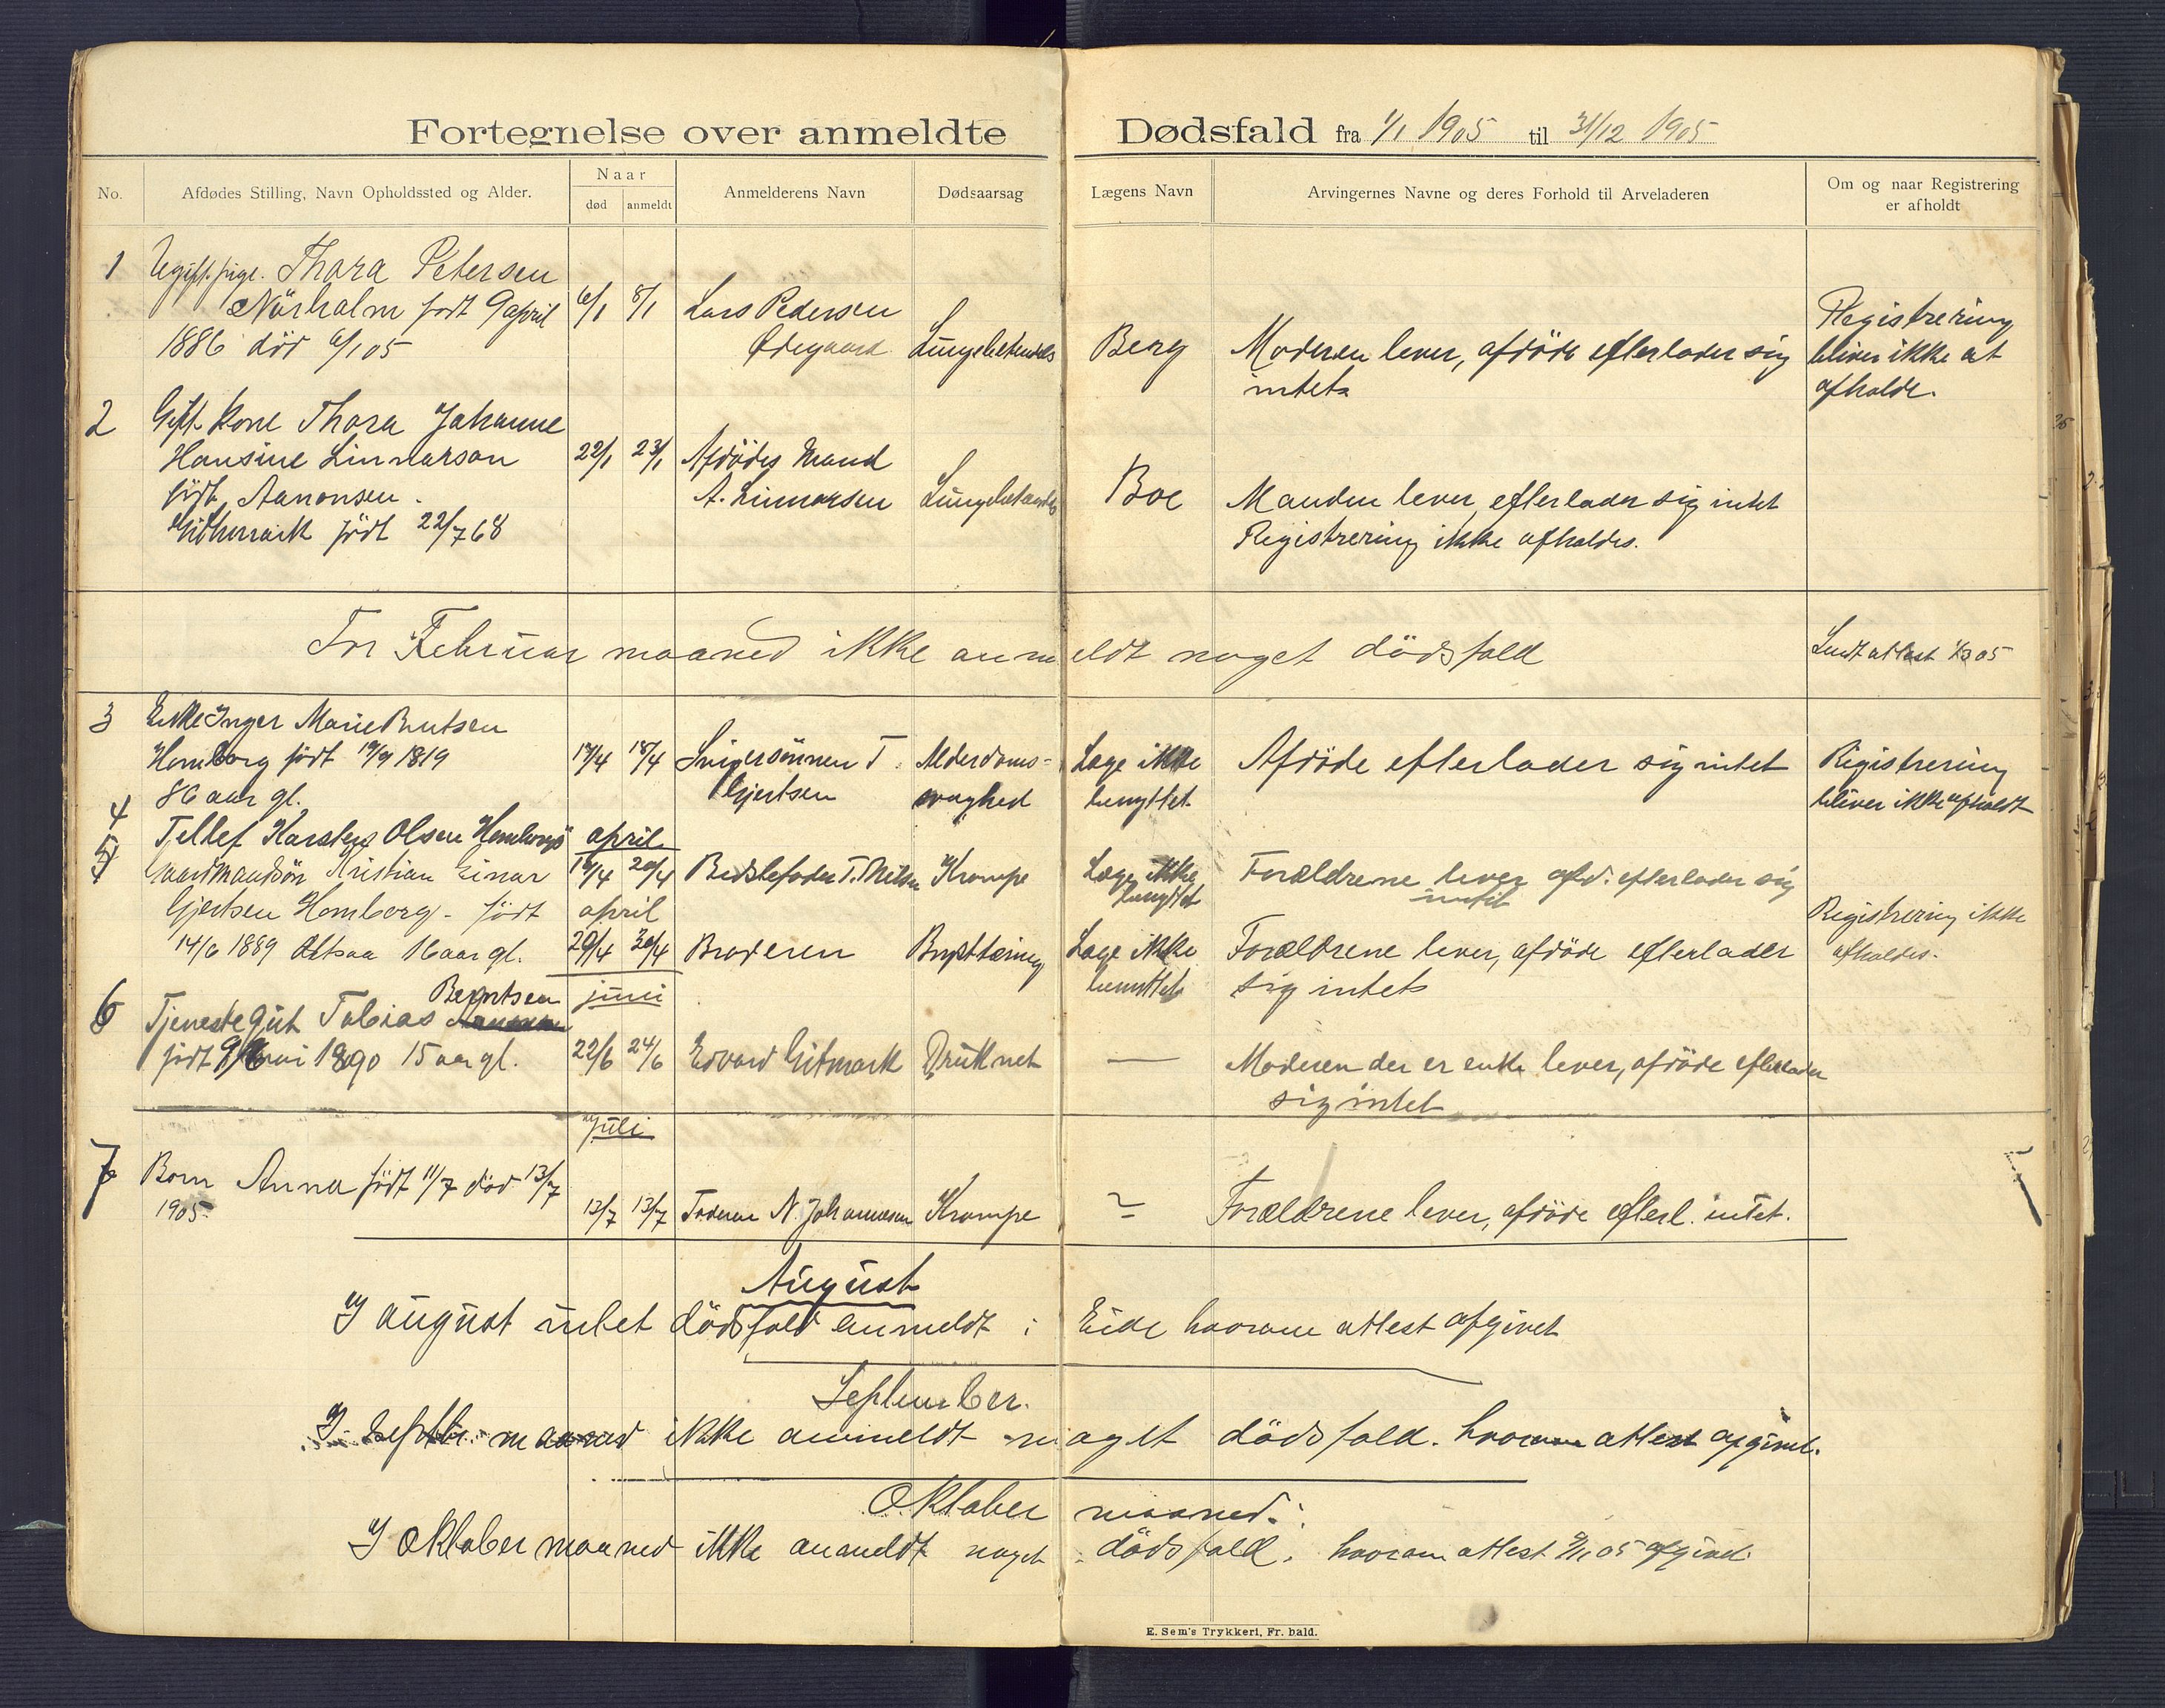 Fortegnelse over anmeldte Dødsfald fra 1/1 1905 til 31/12 1905
No. Afdødes Stilling, Navn Opholdssted og Alder. Naar død anmeldt Anmelderens Navn Dødsaarsag Lægens Navn Arvingernes Navne og deres Forhold til Arveladeren Om og naar Registrering er afholdt
1 Ugift pige. Thora Petersen
Nörholm født 9 april 6/1 8/1 Lars Pedersen Registrering
1886 död 6/1 05 Ødegaard Lungebetændels Berg Moderen lever, afdöde efterlader sig bliver ikke at
intet afholde.
2 Gift kone Thora Johanne
Hansine Linnarson 22/1 23/1 Afdödes mand
födt Aanonsen. A. Linnarsen Lungebetændels Boe Manden lever, efterlader sig intet
födt 22/7 68 Registrering ikke afholdes.
For Februar maaned ikke anmeldt noget dödsfald Sendt attest 1/3 05
3 Enke Inger Marie Knutsen
Homborg födt 19/9 1819 17/4 18/4 Svigersönnen T. Alderdoms- Læge ikke Afdöde efterlader sig intet Registrering
86 aar gl. Gjertsen svaghed benyttet bliver ikke afholdt
4 Tellef Karsten Olsen Homborg april
19/4 20/4 Bedstefader T. Nilsen Krampe Læge ikke benyttet Forældrene lever afd. efterlader sig intet
5 Gaardmandsön Kristian Einar
Gjertsen Homborg - födt april Registrering ikke
14/6 1889 Altsaa 16 aar gl. 29/4 30/4 Broderen Brysttæring Læge ikke Forældrene lever, afdöde efterlader afholdes.
benyttet sig intet
Berntsen juni
6 Tjenestegut Tobias
födt 9 1890 15 aar gl. 22/6 24/6 Edvard Gitmark Druknet — Moderen der er enke lever, afdöde efterlader
sig intet
juli
7 Barn Anna födt 11/7 död 13/7
1905 13/7 13/7 Faderen N. Johannesen Krampe Forældrene lever, afdöde efterl. intet.
August
I august intet dödsfald anmeldt i Eide hvorom attest afgivet
September.
I septbr. maaned ikke anmeldt noget dödsfald. hvorom attest afgivet.
Oktober maaned.
I Oktober maaned ikke anmeldt noget dödsfald. hvorom attest 05 afgivet
E. Sem's Trykkeri, Fr. hald.